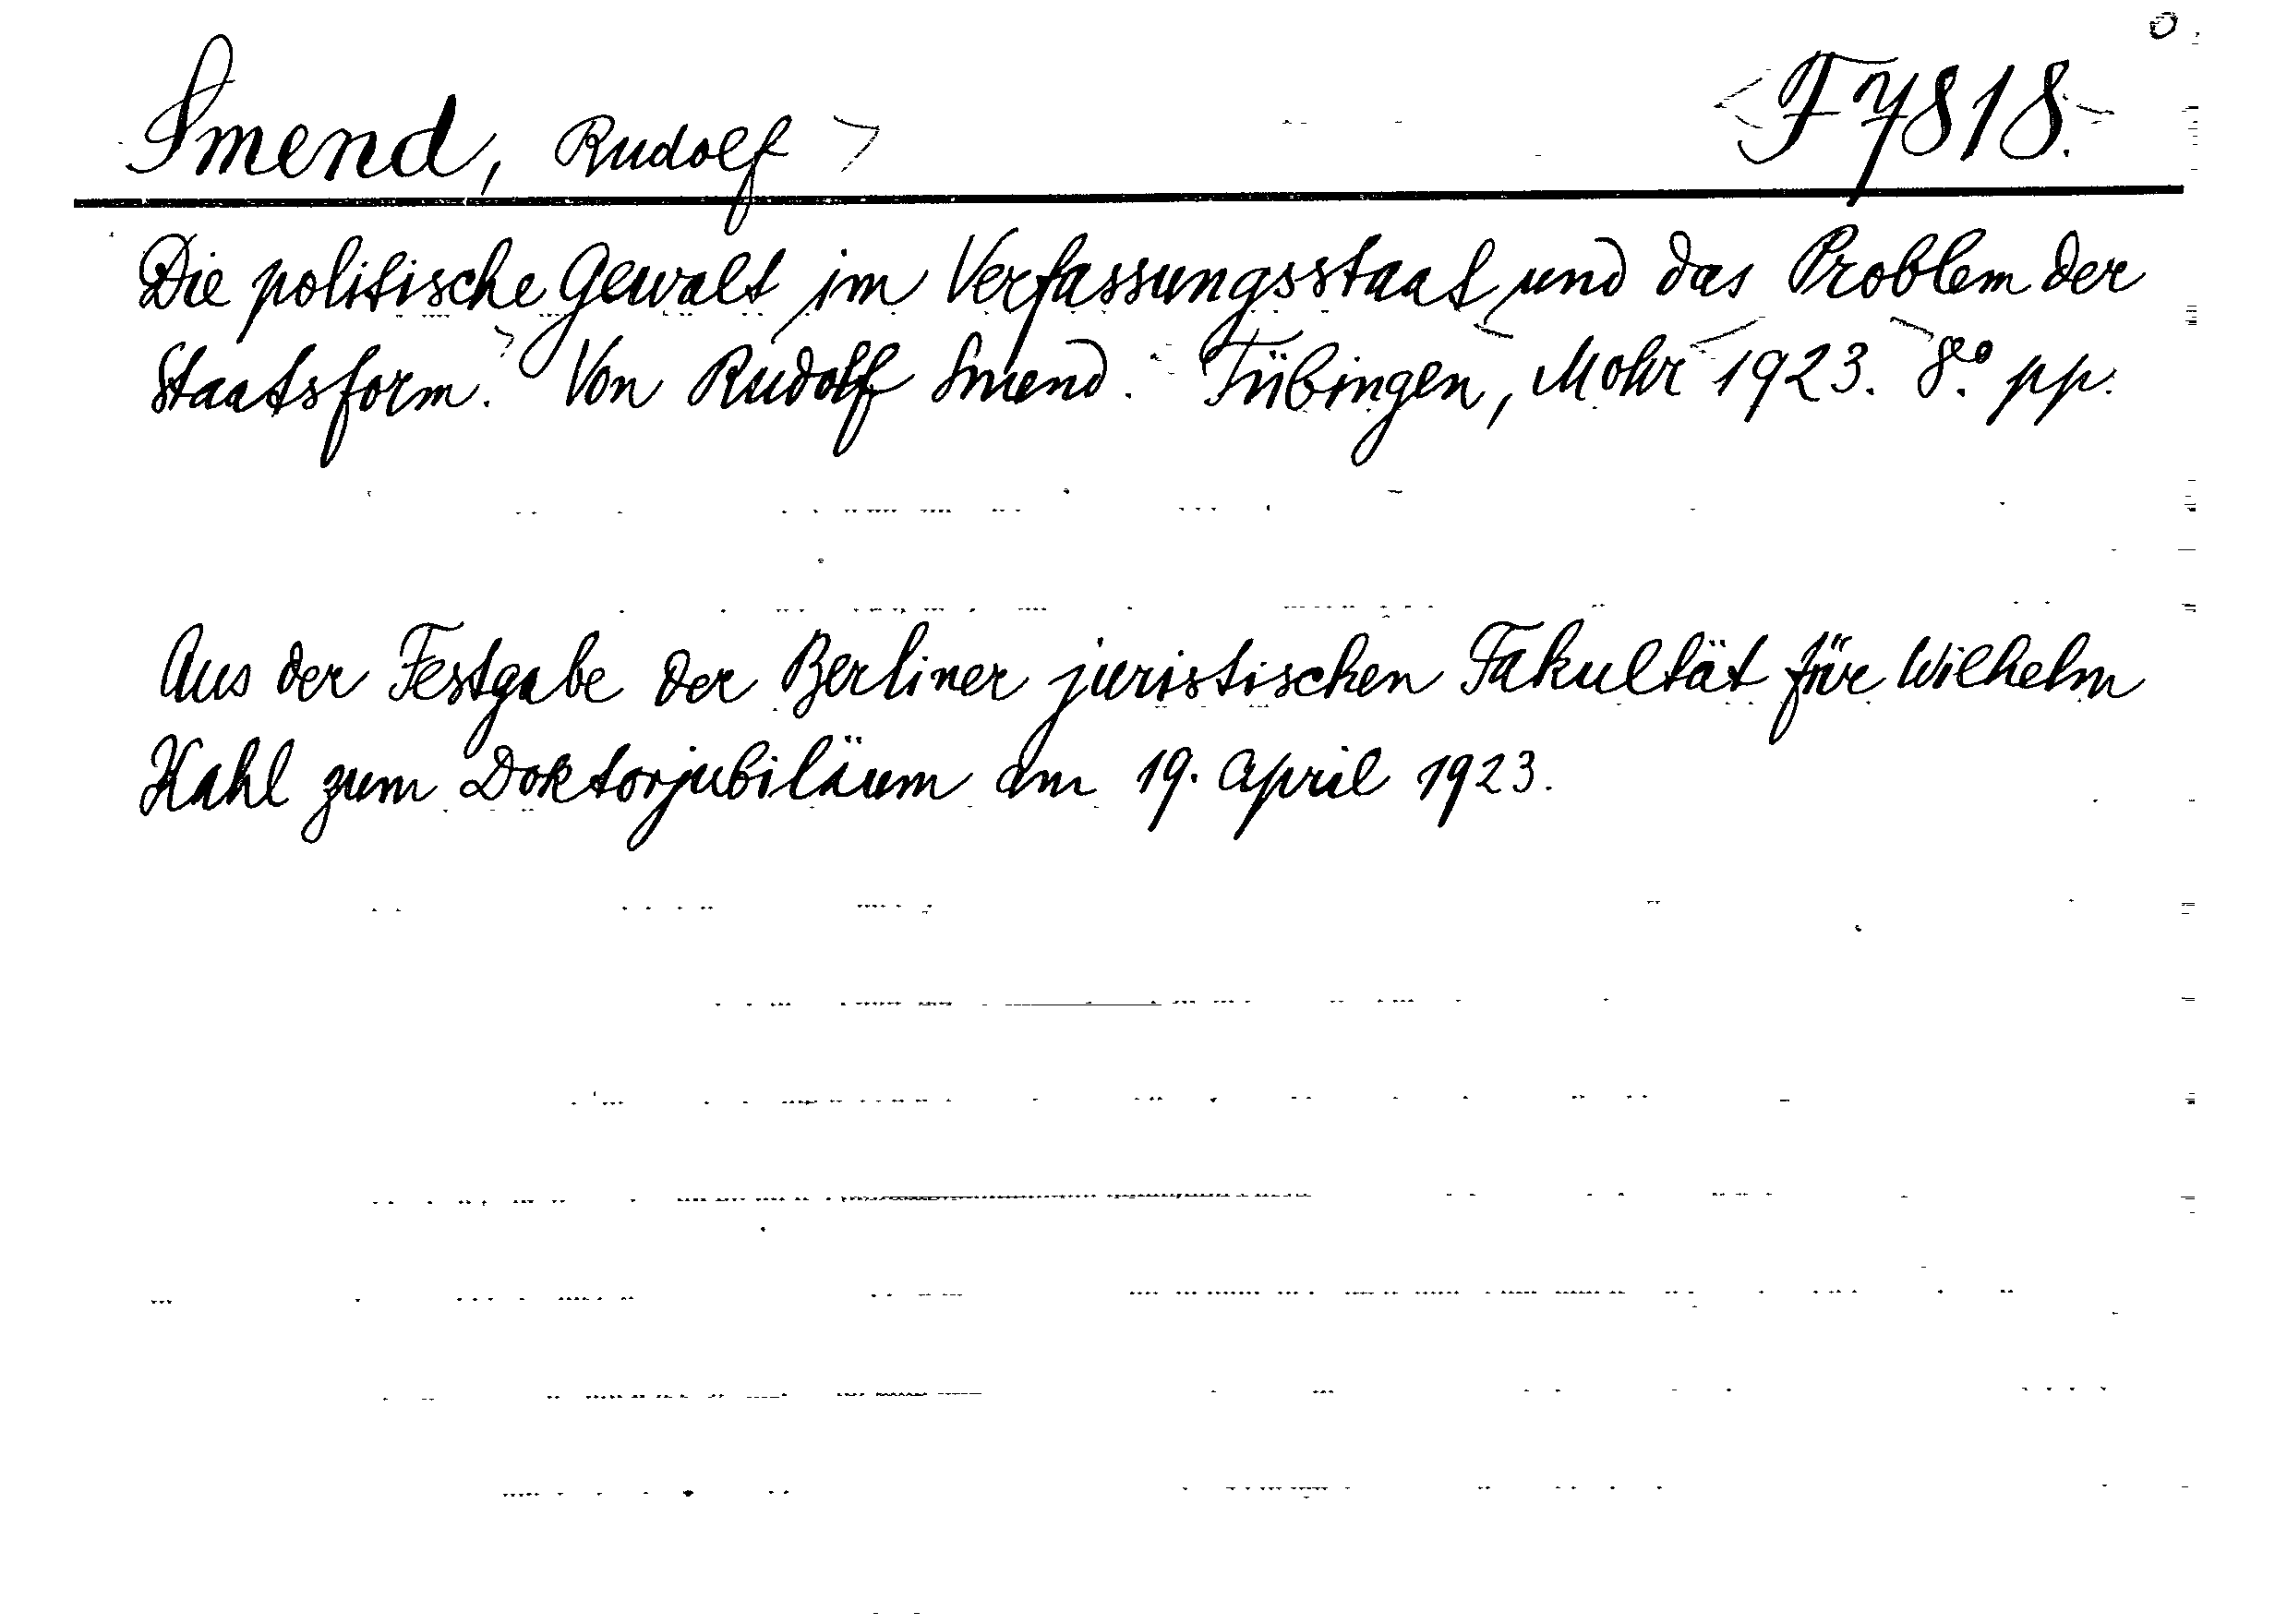 Smend, Rudolf F 7818.
Die politische Gewalt im Verfassungsstaat und das Problem der
Staatsform. Von Rudolf Smend. Tübingen, Mohr 1923. 8.° pp.
Aus der Festgabe der Berliner juristischen Fakultät für Wilhelm
Kahl zum Doktorjubiläum am 19. April 1923.